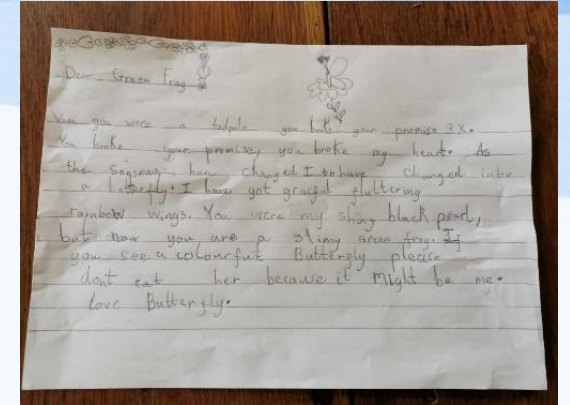 Dear Green Frog
When you were a tadpole you broke your promise 3X.
You broke your promise, you broke my heart. As
the seasons have changed I to have changed into
a butterfly. I have got graceful fluttering
rainbow wings. You were my shiny black pearl,
but now you are a slimy green frog. If
you see a colourful Butterfly please
dont eat her because it might be me.
love Butterfly.